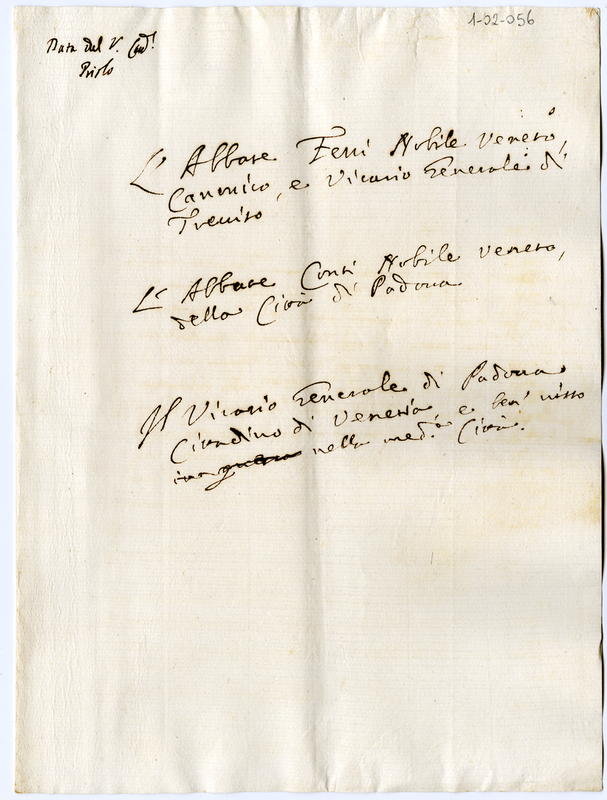 1-02-056
Data dal V. Cad.l
Priolo
L' Abbate Ferri Nobile Veneto,
Canonico, e Vicario Generale di
Treviso
L' Abbate Conti Nobile Veneto,
della Città di Padova
Il Vicario Generale di Padova
Cittadino di Venezia, e ben visto
nella med.a Città.